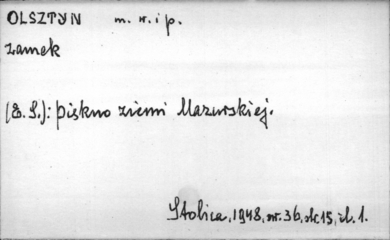 OLSZTYN m. w. i p.
zamek
(E. S.): piękno ziemi Mazurskiej.
Stolica, 1948, nr. 36, str. 15, il. 1.